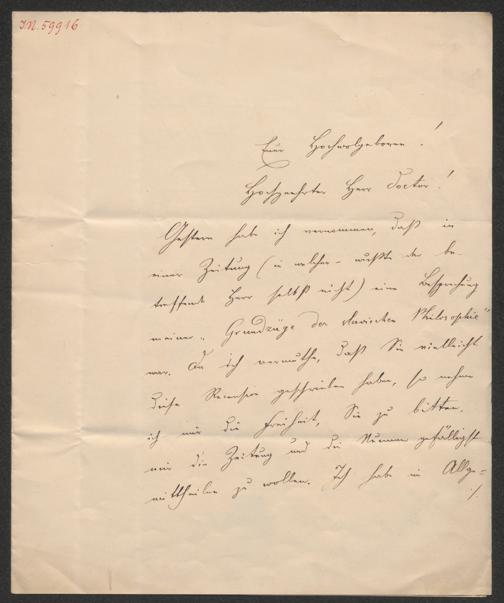 I.N. 59916
Euer Hochwolgeboren!
Hochgeehrter Herr Doctor!
Gestern habe ich vernommen, daß in
einer Zeitung (in welcher - wußte der be-
treffende Herr selbst nicht) eine Besprechung
meiner „Grundzüge der slavischen Philosophie“
war. Da ich vermuthe, daß Sie vielleicht
diese Recension geschrieben haben, so nehme
ich mir die Freiheit, Sie zu bitten,
mir die Zeitung und die Numer gefälligst
mittheilen zu wollen. Ich habe in Allge-
./.